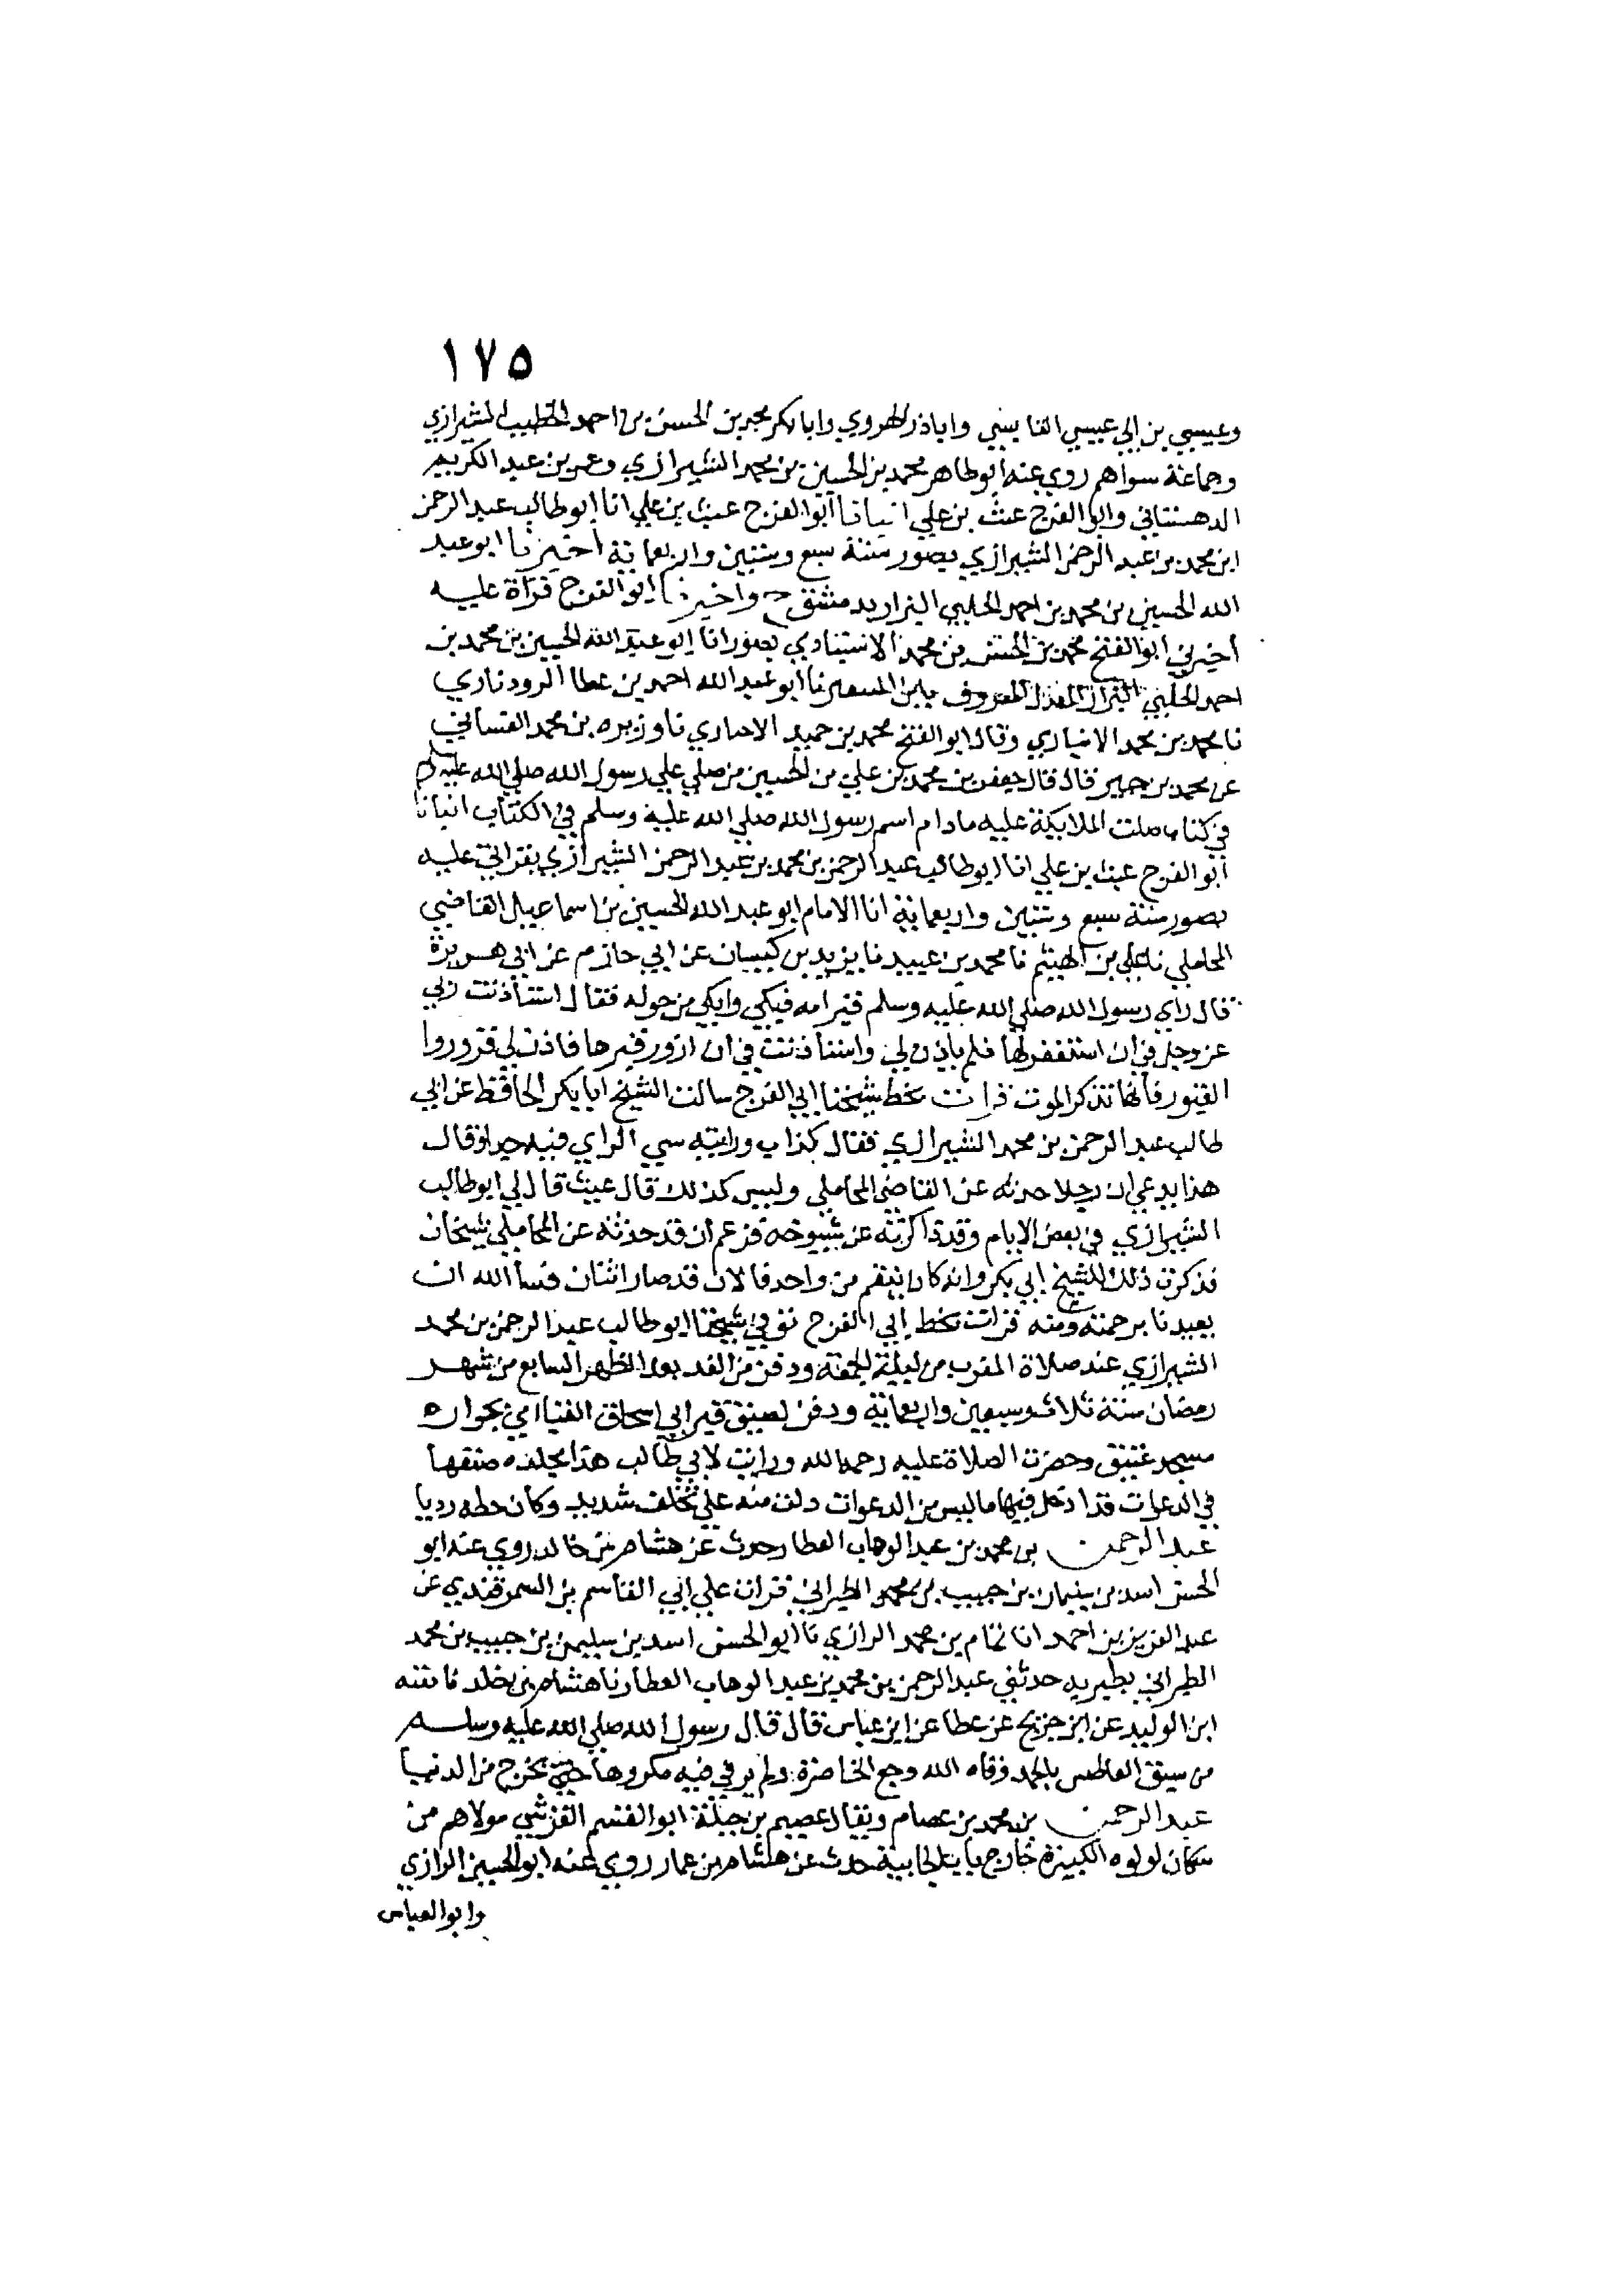 ١٧٥
وعيسي بن ابي عيسي القابسي واباذر الهروي وابابكر محمد بن الحسن بن احمد الخطيب الشيرازي
وجماعة سواهم روي عنه ابوطاهر محمد بن الحسين بن محمد الشيرازي وعمر بن عبد الكريم
الدهستاني وابو الفرج غيث بن علي انبانا ابو الفرج غيث بن علي انا ابو طالب عبد الرحمن
ابن محمد بن عبد الرحمن الشيرازي بصور سنة سبع وستين واربعماية اخبرنا ابو عبد
الله الحسين بن محمد بن احمد الحلبي البزار بدمشق ح واخبرنا ابو الفرج قراة عليه
اخبرني ابو الفتح محمد بن الحسن بن محمد بصور انا ابو عبد الله الحسين بن محمد بن
احمد الحلبي البزار المعدل المعروف بابن نا ابو عبد الله احمد بن عطا الروذباري
نا محمد بن محمد الانباري وقال ابو الفتح محمد بن حميد نا وزيره بن محمد الغساني
عن محمد بن حمير قال قال جعفر بن محمد بن علي بن الحسين من صلي علي رسول الله صلي الله عليه وسلم
في كتاب صلت الملايكة عليه مادام اسم رسول الله صلي الله عليه وسلم في الكتاب انبانا
ابو الفرج غيث بن علي انا ابو طالب عبد الرحمن بن محمد بن عبد الرحمن الشيرازي بقراتي عليه
بصور سنة سبع وستين واربعماية انا الامام ابو عبد الله الحسين بن اسماعيل القاضي
المحاملي نا علي بن الهيثم نا محمد بن عبيد نا يزيد بن كيسان عن ابي حازم عن ابي هريرة
قال راي رسول الله صلي الله عليه وسلم قبر امه فبكي وابكي من حوله فقال استاذنت ربي
عز وجل في ان استغفر لها فلم ياذن لي واستاذنت في ان ازور قبرها فاذن لي فزوروا
القبور فانها تذكر الموت قرات بخط شيخنا ابي الفرج سالت الشيخ ابابكر الحافظ عن ابي
طالب عبد الرحمن بن محمد الشيرازي فقال كذاب ورايته سي الراي فيه جدا وقال
هذا يدعي ان رجلا حدثه عن القاضي المحاملي وليس كذلك قال غيث قال لي ابو طالب
الشيرازي في بعض الايام وقد ذاكرته عن شيوخه فزعم ان قد حدثه عن المحاملي شيخان
فذكرت ذلك للشيخ ابي بكر وانه كان ينقم من واحد فالان قد صار اثنان فنسا الله ان
يعيدنا برحمته ومنه قرات بخط ابي الفرج توفي شيخنا ابو طالب عبد الرحمن بن محمد
الشيرازي عند صلاة المغرب من ليلة الجمعة ودفن من الغد بعد الظهر السابع من شهر
رمضان سنة ثلاث وسبعين واربعماية ودفن لصيق قبر ابي اسحاق بجواره
مسجد عتيق وحضرت الصلاة عليه رحمه الله ورايت لابي طالب هذا مجلده صنفها
في الدعوات قد ادخل فيها ما ليس من الدعوات دلت منه علي تخلف شديد وكان خطه رديا
عبد الرحمن بن محمد بن عبد الوهاب العطار حدث عن هشام بن خالد روي عنه ابو
الحسن اسد بن سليمان بن حبيب بن محمد الطبراني قرات علي ابي القاسم بن السمرقندي عن
عبد العزيز بن احمد انا تمام بن محمد الرازي نا ابو الحسن اسد بن سليمن بن حبيب بن محمد
الطبراني بطبريه حدثني عبد الرحمن بن محمد بن عبد الوهاب العطار نا هشام بن خلد نا بقيه
ابن الوليد عن ابن جريح عن عطا عن ابن عباس قال قال رسول الله صلي الله عليه وسلم
من سبق العاطس بالحمد وقاه الله وجع الخاصرة ولم ير في فيه مكروها حتي يخرج من الدنيا
عبد الرحمن بن محمد بن عصام ويقال عصيم بن جبلة ابو القسم القرشي مولاهم من
سكان لولوه الكبيرة خارج باب الجابية حدث عن هشام بن عمار روي عنه ابو الحسين الرازي
وابو العباس